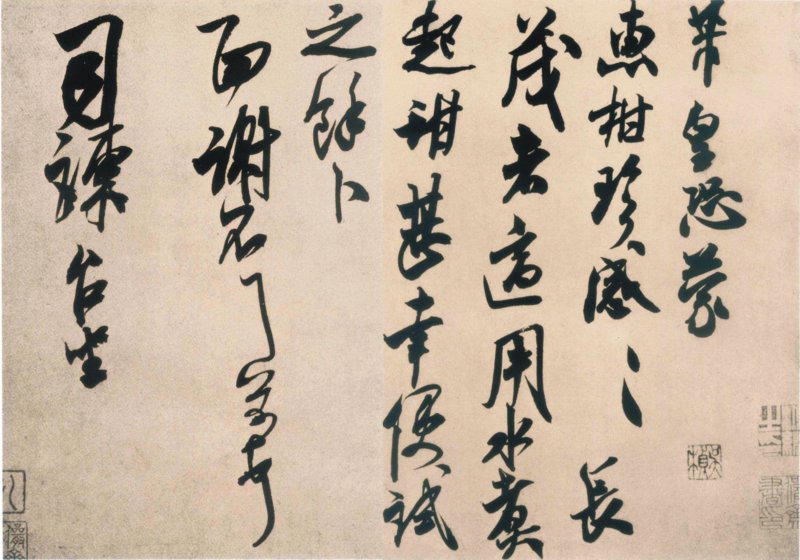 芾皇恐蒙
惠柑珍〻感〻長
茂者適用水煮
起甜甚幸便試
之餘卜
面謝不
司諫台坐